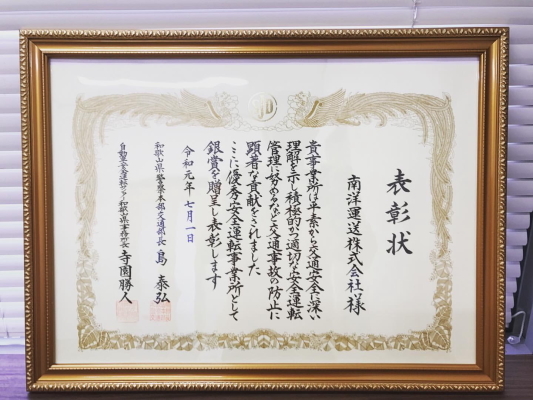 表彰状
南洋運送株式会社様
貴事業所は平素から交通安全に深い
理解を示し積極的かつ適切な安全運転
管理に努めるなど交通事故の防止に
顕著な貢献をされました
ここに優秀安全運転事業所として
銀賞を贈呈し表彰します
令和元年七月一日
和歌山県警察本部交通部長 島 泰弘
自動車安全運転センター和歌山県事務所長 寺園勝人